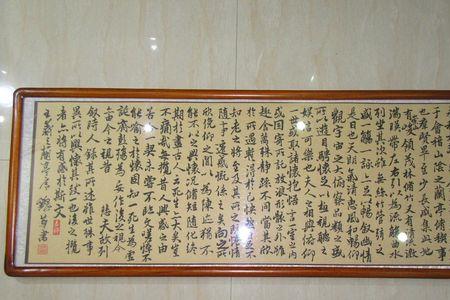 于會稽山陰之蘭亭脩稧事
也群賢畢至少長咸集此地
有崇領茂林脩竹又有清流激
湍暎帶左右引以為流觴曲水
列坐其次雖無絲竹管弦之
盛一觴一詠亦足以暢叙幽情
是日也天朗氣清惠風和暢仰
觀宇宙之大俯察品類之盛
所以遊目騁懷足以極視聽之
娛信可樂也夫人之相與俯仰
一世或取諸懷抱悟言一室之內
或因寄所託放浪形骸之外雖
趣舍萬殊靜躁不同當其欣
於所遇暫得於己快然自足不
知老之將至及其所之既惓情
隨事遷感慨係之矣向之所
欣俛仰之間以為陳迹猶不
能不以之興懷況脩短隨化終
期於盡古人云死生亦大矣豈
不痛哉每攬昔人興感之由
若合一契未嘗不臨文嗟悼不
能喻之於懷固知一死生為虛
誕齊彭殤為妄作後之視今
亦由今之視昔悲夫故列
叙時人錄其所述雖世殊事
異所以興懷其致一也後之攬
者亦將有感於斯文
王羲之蘭亭序